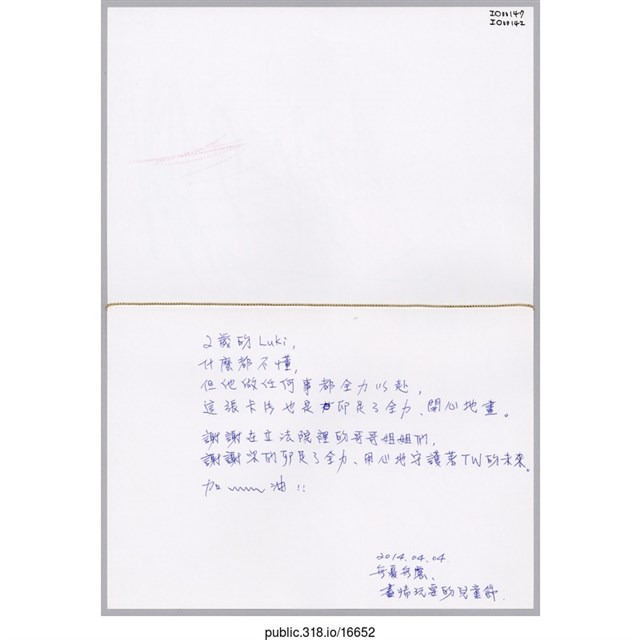 IO00147
IO00142
2歲的Luki,
什麼都不懂,
但他做任何事都全力以赴,
這張卡片也是卯足了全力、開心地畫。
謝謝在立法院裡的哥哥姐姐們,
謝謝你們卯足了全力、用心地守護著TW的未來。
加~~~油!!
2014.04.04.
盡情玩耍的兒童節.
public.318.io/16652